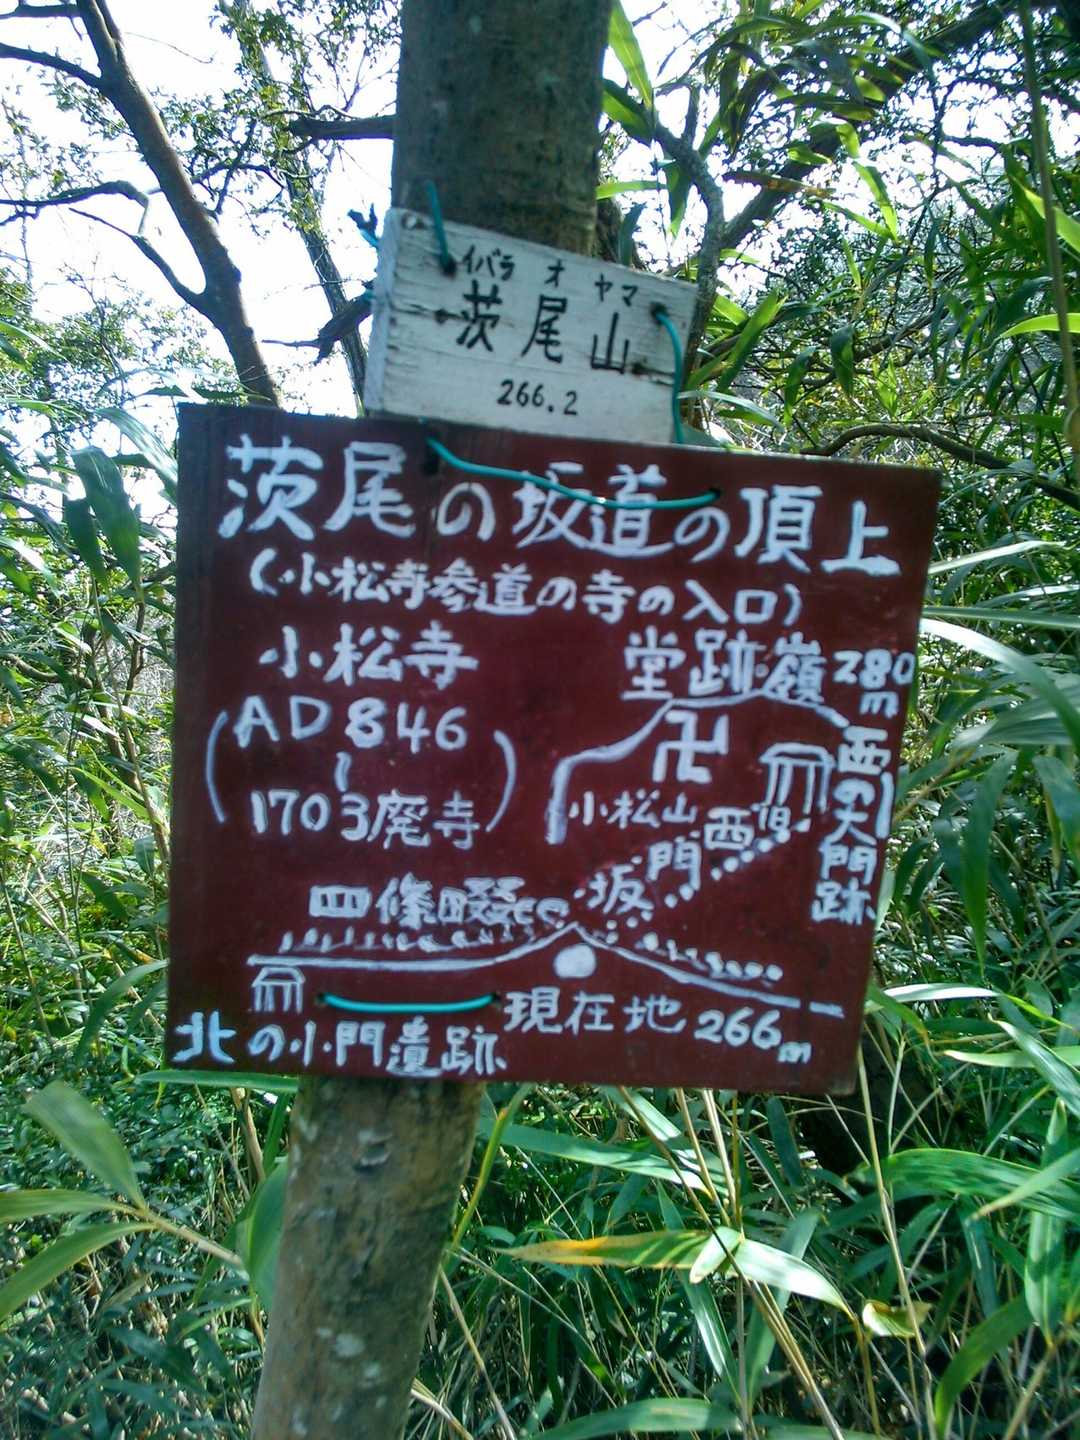 イバラ オ ヤマ
茨尾山
266.2
茨尾の坂道の頂上
(小松寺参道の寺の入口)
小松寺
(AD 846
〜
1703廃寺)
堂跡嶺 280m
卍
小松山
西の大門跡
西坂門
四條畷
現在地 266m
北の小門遺跡